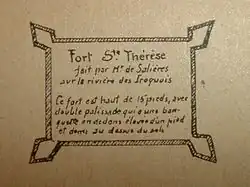 Fort Ste Thérèse
fait par Mr de Salières
sur la rivière des Iroquois
Ce fort est haut de 15 pieds, avec
double palissade qui a une ban-
quette en dedans élevée d'un pied
et demi au dessus du sol